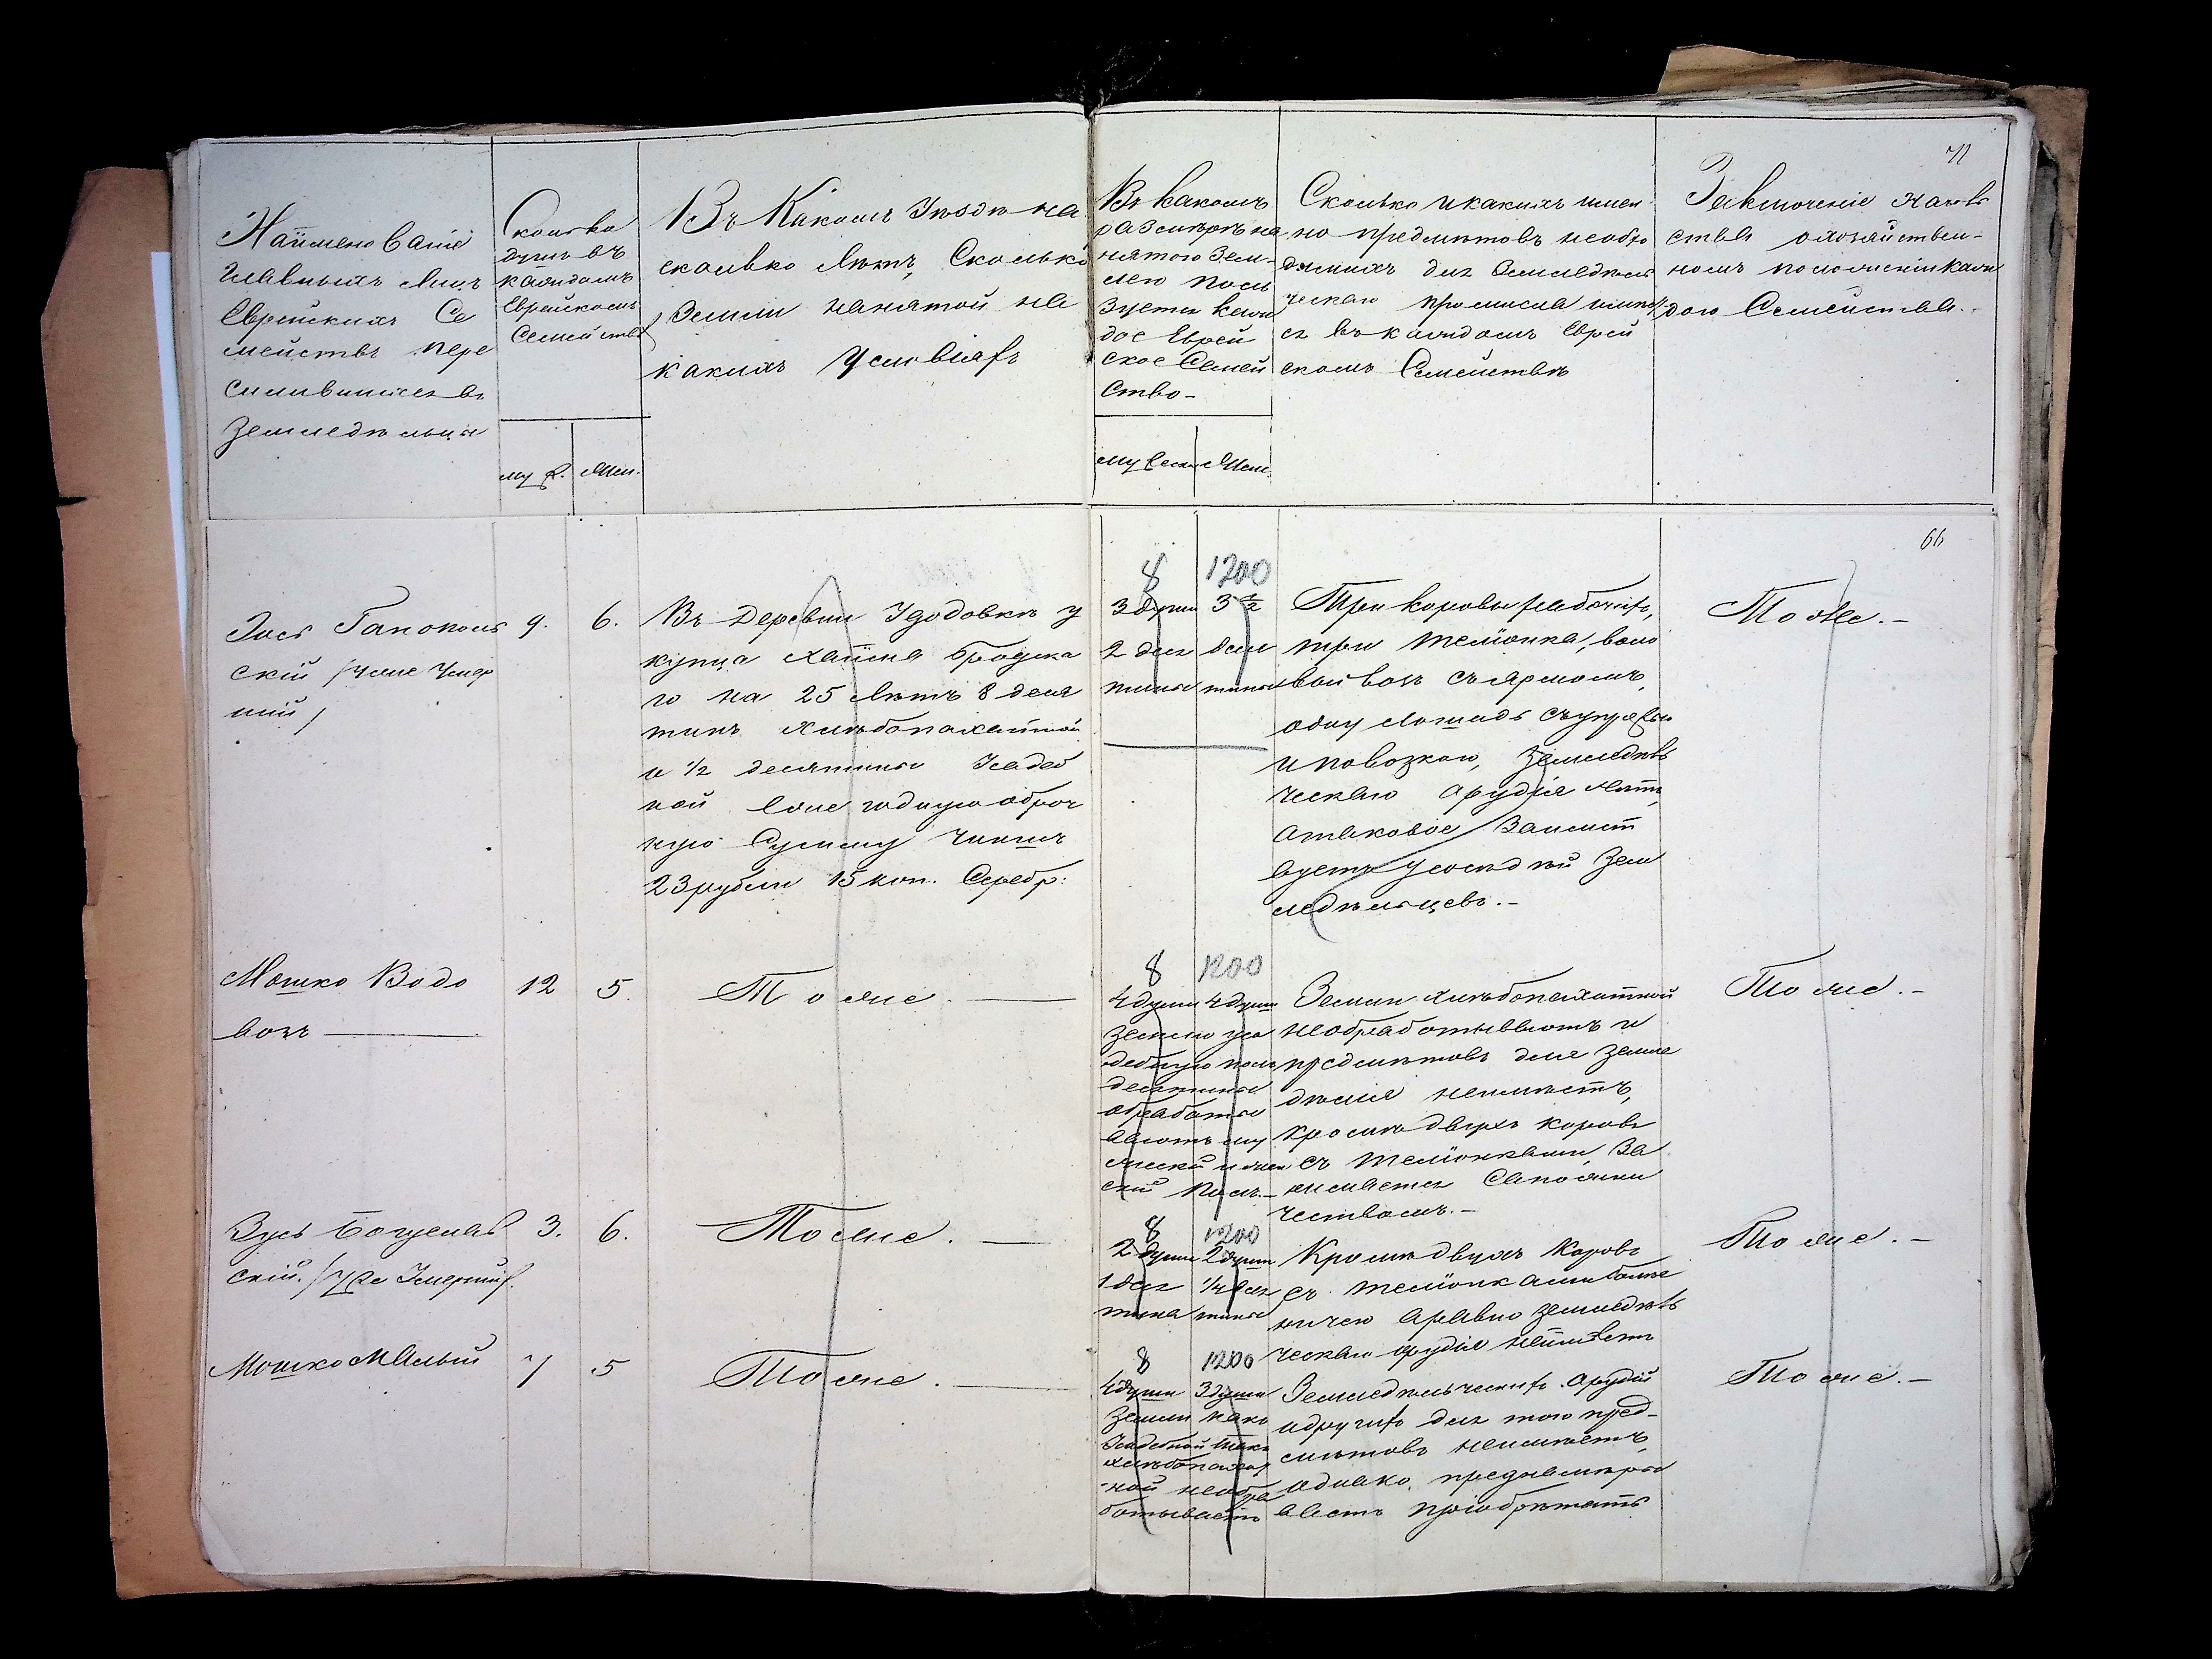 71
Наименованіе
главныхъ лицъ
Еврейскихъ Се
мействъ пере
сились въ
земледѣльцы
Сколько
душъ въ
каждомъ
Еврейскомъ
Семействѣ
муж.
жен.
Въ Какомъ Уѣздѣ на
сколько лѣтъ, Сколько
земли нанятой на
какихъ Условіяхъ
Въ какомъ
размѣрѣ на
нятою Зем-
лею поль
зуется каж
дое Еврей
ское Семей
ство-
мужеск
Жен.
Сколько и какихъ имен
но предметовъ необхо
димыхъ для Земледѣль
ческаго промысла имѣет
ся въ каждомъ Еврей
скомъ Семействѣ
Заключеніе
ства о хозяйствен-
номъ положеніи каж
даго Семейства.-
66
Гапонов
скій /чже
ній/
9.
6.
Въ Деревни Удодовкѣ у
купца Хаима Бродска
го на 25 лѣтъ 8 деся
тинъ хлѣбопахатной
и 1/2 десятины Усадеб
ной
ную Сумму Чиншъ
23 рубли 15 коп. Серебр:
8
1200
3 души
2 деся
тины
3 1/2
деся
тины
Три коровы рабочихъ,
три телёнка,
вой возъ съ ярмомъ,
одну лошадь съ упряжью
и повозкою, Земледѣль
ческаго орудія нѣтъ,
а таковое Заимст
вуетъ у сосѣдній Зем
ледѣльцевъ.-
Тоже.-
Мошко Водо
возъ
12
5.
Тоже.
8
1200
4 души
4 души
землю уса
дебную пол
десятины
обработы
ваютъ му
жескій и жен
скій полъ.-
Земли хлѣбопахатной
необработываютъ и
предметовъ для земле
дѣлія неимѣетъ,
кромѣ двухъ коровъ
съ телёнками, За
нимается Сапожни
чествомъ.-
Тоже.-
Зусь Богуслав
скій. /
3.
6.
Тоже.
8
1200
2 души
1 деся
тина
2 души
1/4 деся
тины
Кромѣ двухъ Коровъ
съ телёнками болѣе
ничего а равно земледѣль
ческаго орудія неимѣетъ
Тоже.-
Мошко Малый
7
5
Тоже.
8
1200
4 души
3 души
земли како
Усадебной такъ
хлѣбопахат
-ной необра
ботываетъ
Земледѣльческихъ орудій
и другихъ для того пред-
метовъ неимѣетъ,
однако, преднамѣре
ваетъ пріобрѣтать
Тоже.-